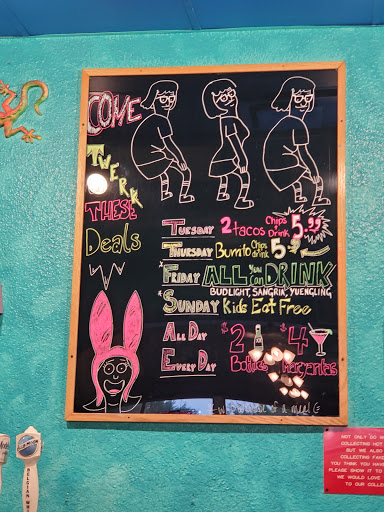 COME
TWERK
THESE
Deals
TUESDAY 2 tacos Chips Drink 5.
THURSDAY Burrito Chips drink 5
FRIDAY ALL YOU CAN DRINK
BUDLIGHT, SANGRIA, YUENGLING
SUNDAY Kids Eat Free
ALL DAY
EVERY DAY
$2 Bottles
$4 Margaritas
of a meal
NOT ONLY DO
COLLECTING HOT
BUT WE ALSO
COLLECTING FAKE
YOU THINK YOU HAVE
PLEASE SHOW IT TO
WE WOULD LOVE
TO OUR COLLE
BELGIAN